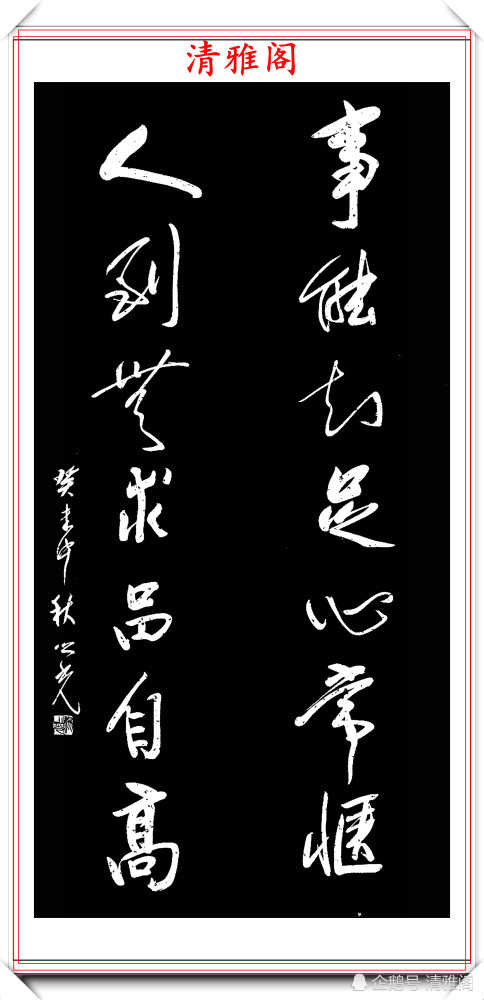 清雅阁
事能知足心常惬
人到無求品自高
癸未中秋公尧
企鹅号 清雅阁